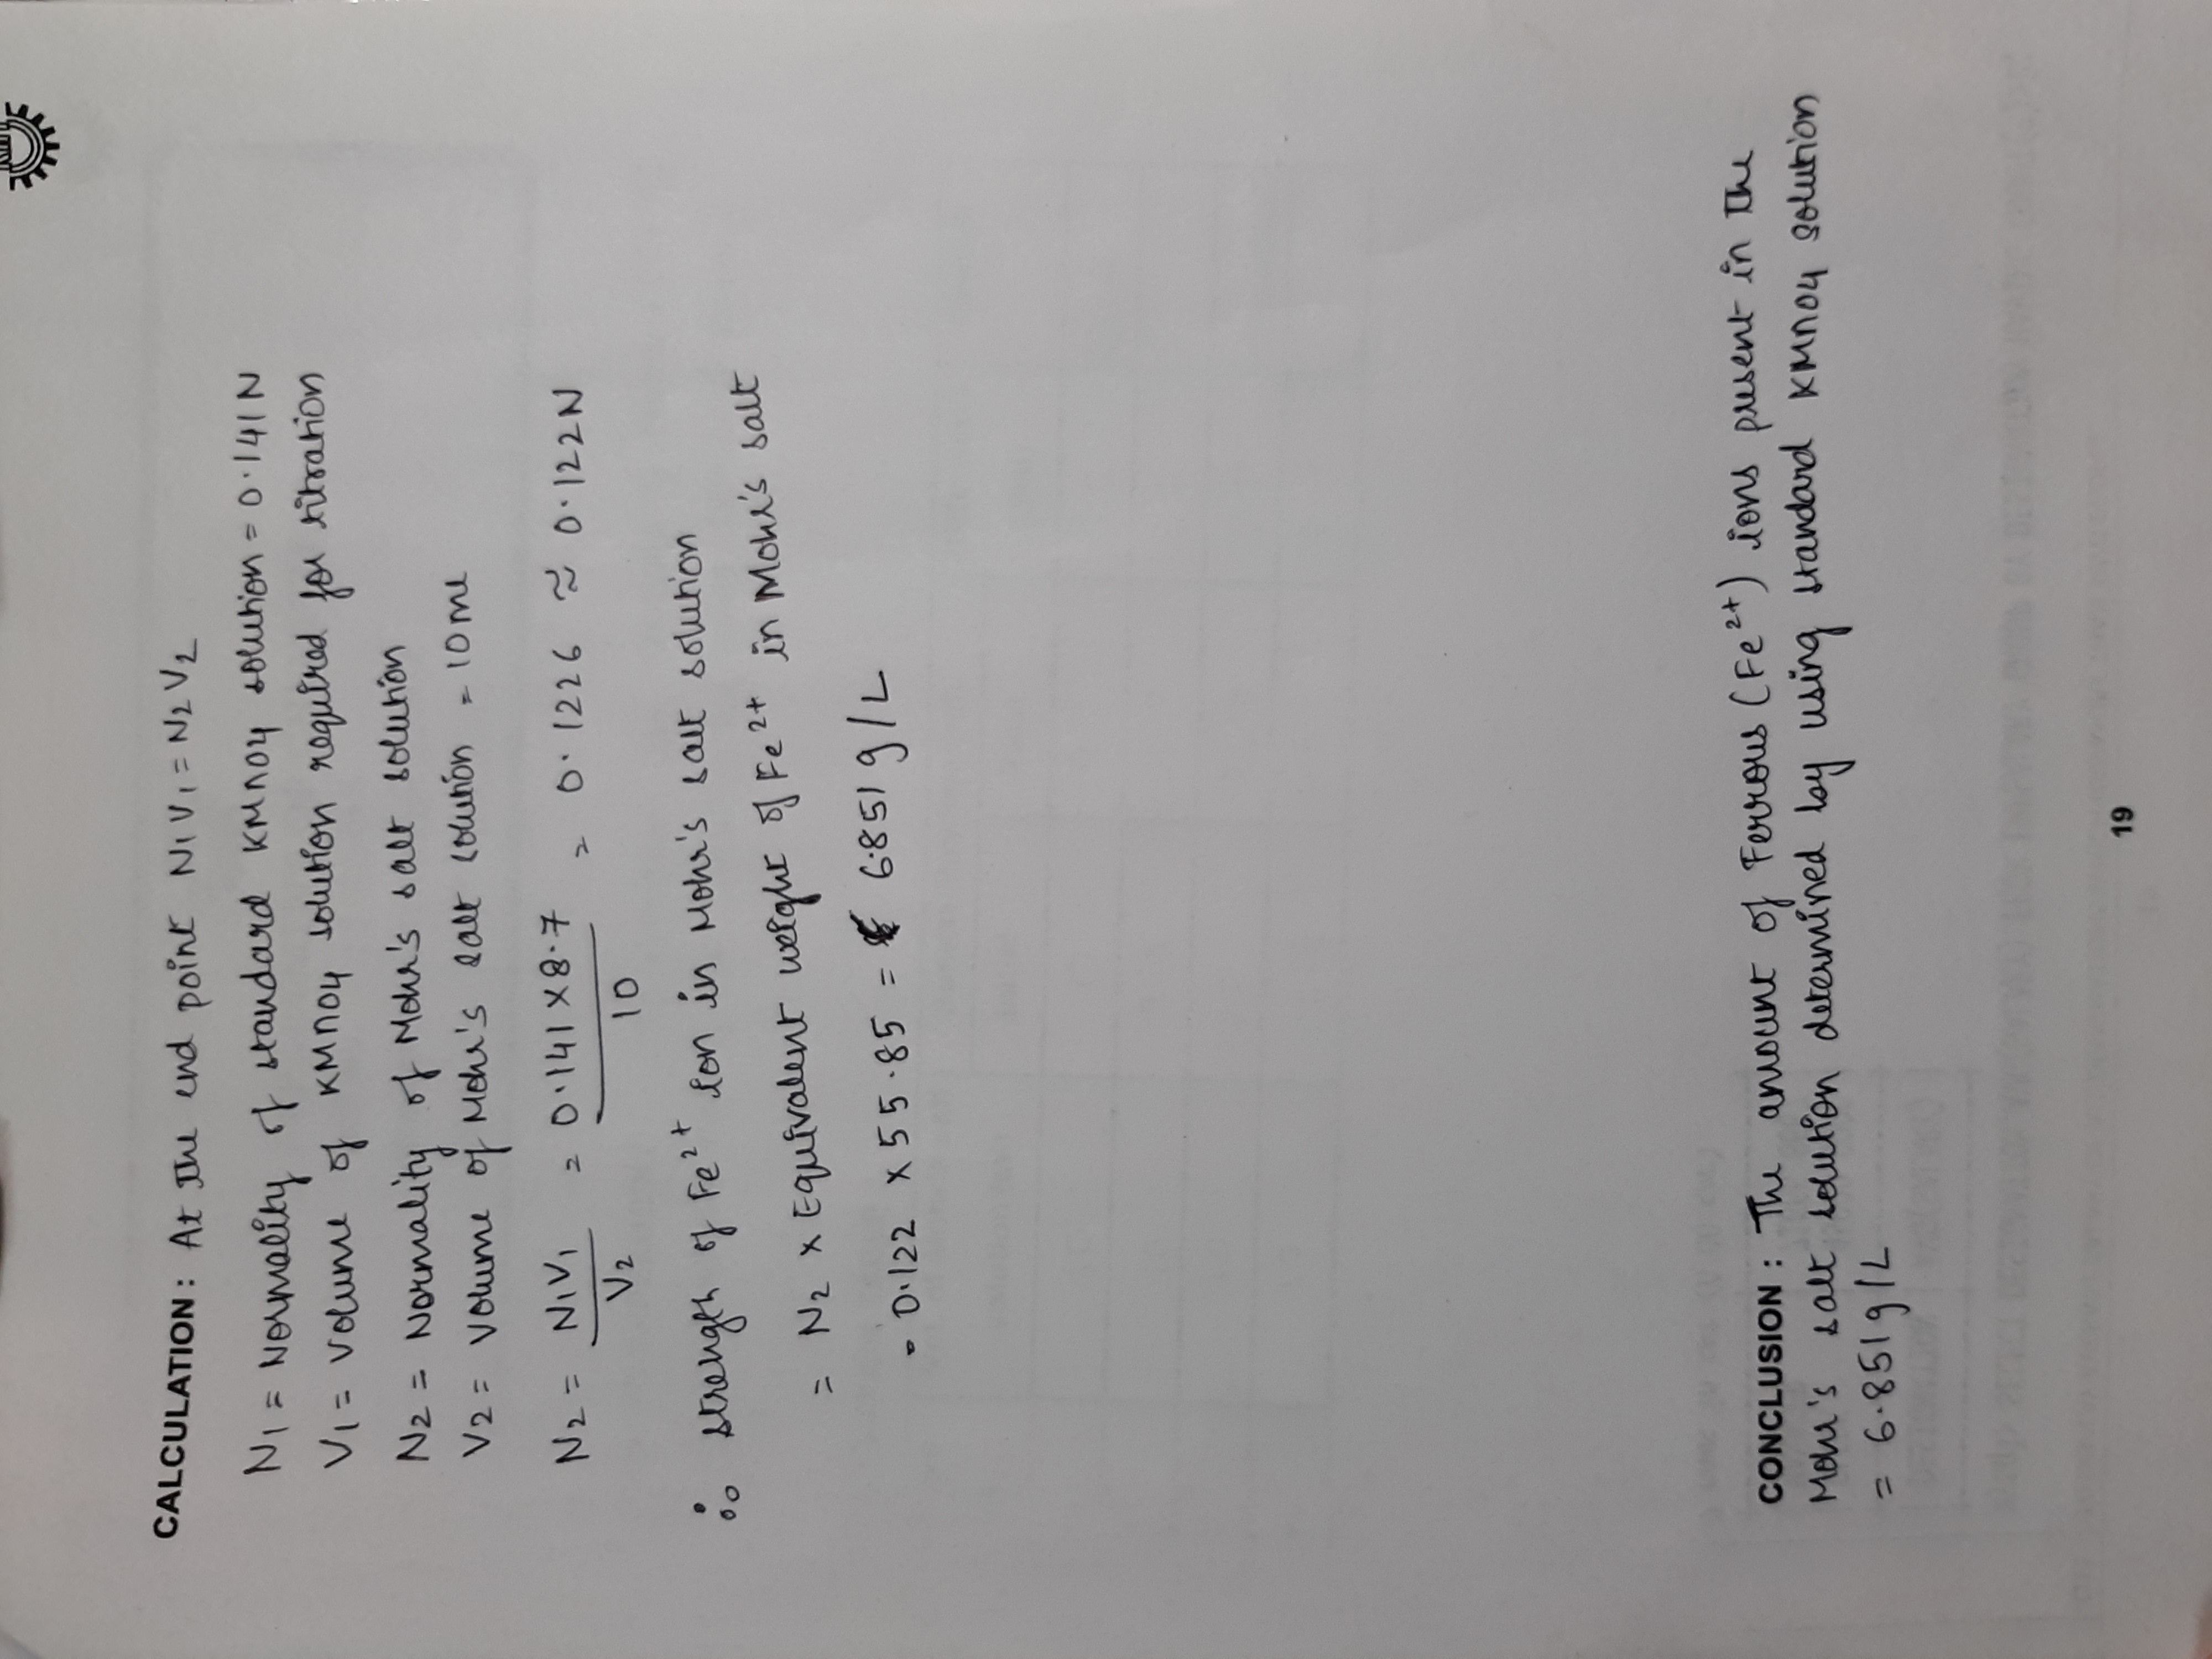 CALCULATION : At the end point N1V1 = N2V2
N1 = Normality of standard KMnO4 solution = 0.141N
V1 = Volume of KMnO4 solution required for titration
N2 = Normality of Mohr's salt solution
V2 = Volume of Mohr's salt solution = 10ml
N2 = N1V1/V2 = 0.141 x 8.7/10 = 0.1226 ≈ 0.122N
∴ strength of Fe²⁺ ion in Mohr's salt solution
= N2 x Equivalent weight of Fe²⁺ in Mohr's salt
= 0.122 x 55.85 = 6.851 g/L
CONCLUSION : The amount of Ferrous (Fe²⁺) ions present in the
Mohr's salt solution determined by using standard KMnO4 solution
= 6.851g/L
19